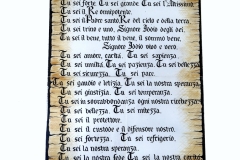 Tu sei forte, Tu sei grande, Tu sei l'Altissimo,
Tu sei il Re onnipotente.
Tu sei il Padre santo, Re del cielo e della terra.
Tu sei trino e uno, Signore Iddio degli dei.
Tu sei il bene, tutto il bene, il sommo bene,
Signore Iddio vivo e vero.
Tu sei amore, carità, Tu sei sapienza.
Tu sei umiltà, Tu sei pazienza, Tu sei bellezza.
Tu sei sicurezza, Tu sei pace.
Tu sei gaudio e letizia, Tu sei la nostra speranza,
Tu sei giustizia, Tu sei temperanza,
Tu sei in sovrabbondanza ogni nostra ricchezza.
Tu sei bellezza, Tu sei mitezza.
Tu sei il protettore,
Tu sei il custode e il difensore nostro,
Tu sei fortezza, Tu sei refrigerio.
Tu sei la nostra speranza,
Tu sei la nostra fede Tu sei la nostra carità,